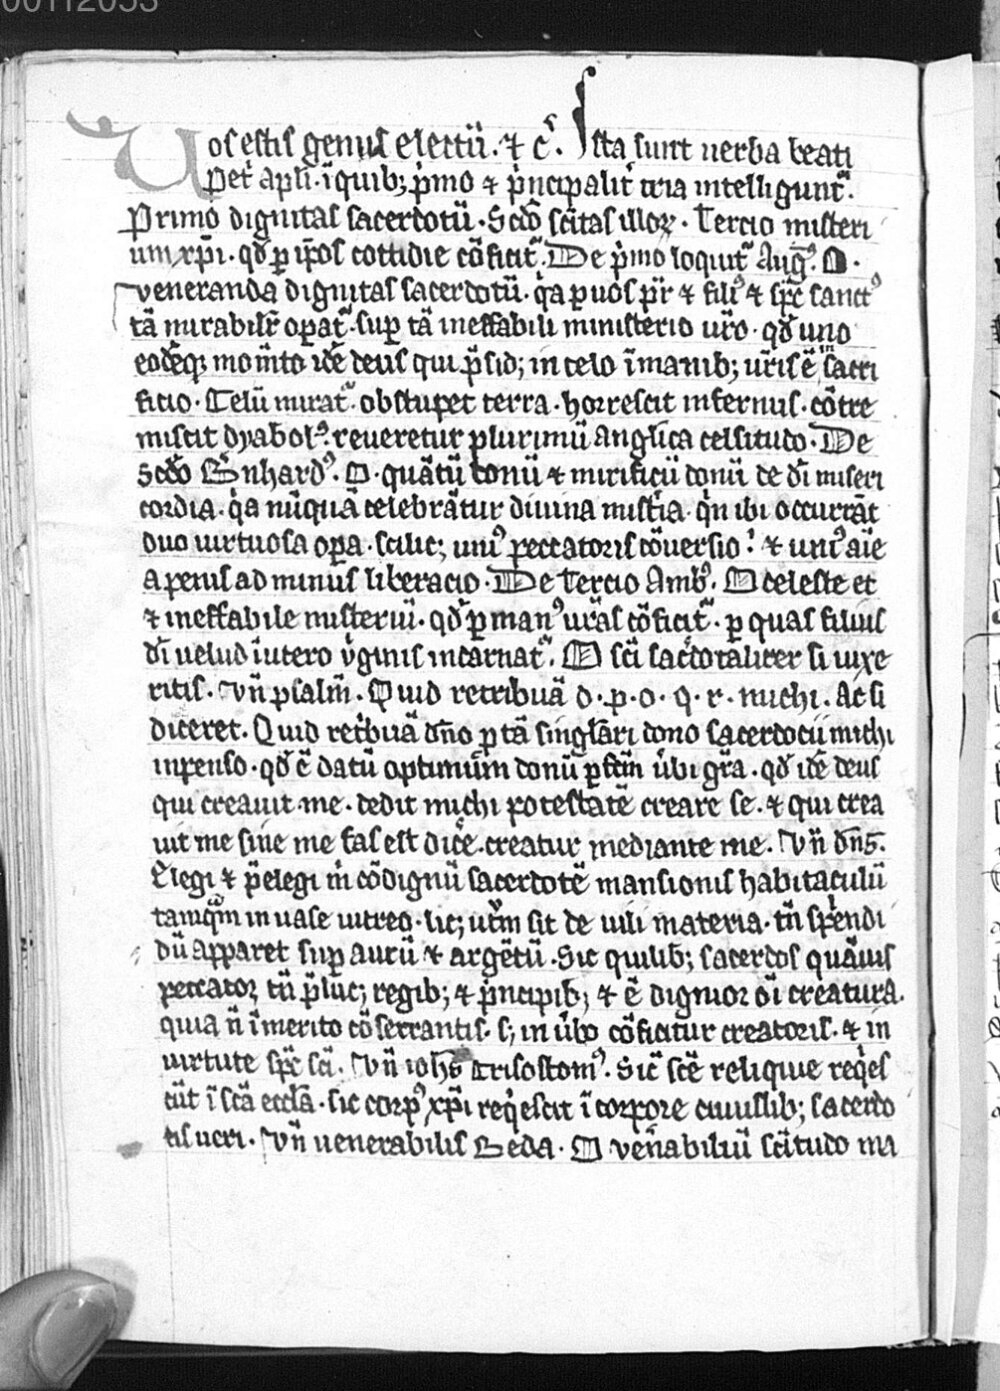 00112053
Vos estis genus electū. ⁊ cͬ. Ista sunt uerba beati
Pet̉ apl̓i. īquib; p̓mo ⁊ p̓ncipalit̉ tria intelligunt᷑.
Primo dignitas sacerdotū. Scdō scītas illoꝝ. Tercio misteri
um xp̄i. qđ ꝑ ip̄os cottidie cōficit᷑. De p̓mo loquit᷑ Aug᷒. O.
veneranda dignitas sacerdotū. q̓a ꝑ uos pr̄ ⁊ fili᷒ ⁊ sp̄c sanct᷒
tā mirabilr̄ oꝑat᷑. suꝑ tā ineffabili ministerio ur̄o. qđ uno
eodēqꝫ momīto idē deus qui p̄sid; in celo ī manib; ur̄is ē in sacri
ficio. Celū mirat᷑. obstupet terra. horrescit infernus. cōtre
miscit dyabol᷒. reueretur plurimū anglīca celsitudo. De
scdō B̄nhard᷒. O. quātū donū ⁊ mirificū donū de dī miseri
cordia. q̓a nūquā celebrātur diuina mist̓ia. q̓n ibi occurrāt
duo uirtuosa oꝑa. scilic; uni᷒ peccatoris cōuersio. ⁊ uni᷒ aīe
a penis ad minus liberacio. De tercio Amb᷒. O celeste et
⁊ ineffabile misteriū. qđ ꝑ man᷒ ur̄as cōficit᷑. ꝑ quas filius
dī uelud ī utero v̓ginis incarnat᷑. O scī sac̓dotaliter si uixe
ritis. Vn̄ psalm̄. Quid retribuā d. p. o. q. r. michi. Ac si
diceret. Quid ret̓buā dn̄o ꝑ tā singl̄ari dono sacerdocii michi
inpenso. qđ ē datū optimūm donū ꝑfc̄m ūbi gr̄a. qđ idē deus
qui creauit me. dedit michi potestatē creare se. ⁊ qui crea
uit me sine me fas est dic̓e. creatur mediante me. Vn̄ dn̄s.
Elegi ⁊ p̄elegi m̓ cōdignū sacerdotē mansionis habitaculū
tamqͣm in uase uitreo. lic; ut̓m sit de uili materia. tn̄ sp̄endi
dū apparet suꝑ aurū ⁊ argētū. Sic quilib; sacerdos quāuis
peccatoꝝ tn̄ p̄luc; regib; ⁊ p̓ncipib; ⁊ ē dignior oī creatura.
quia n̄ īmerito cōsecrantis. s; in ūbo cōficitur creatoris. ⁊ in
uirtute sp̄c scī. Vn̄ ioh̄s crisostom᷒. Sic̄ scē reliquie req̓es
cūt ī scā eccl̄ā. sic corp᷒ xp̄i req̓escit ī corpore cuiuslib; sacerdo
tis ueri. Vn̄ uenerabilis Beda. O. ven̓abiliū scītudo ma